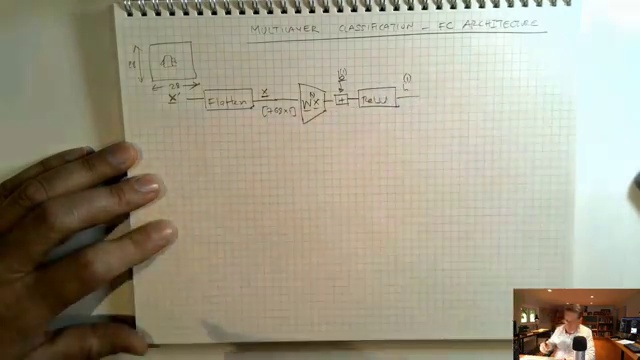 MULTILAYER CLASSIFICATION - FC ARCHITECTURE
28
28
x' Flatten x [768x1] W x + ReLU
(1)